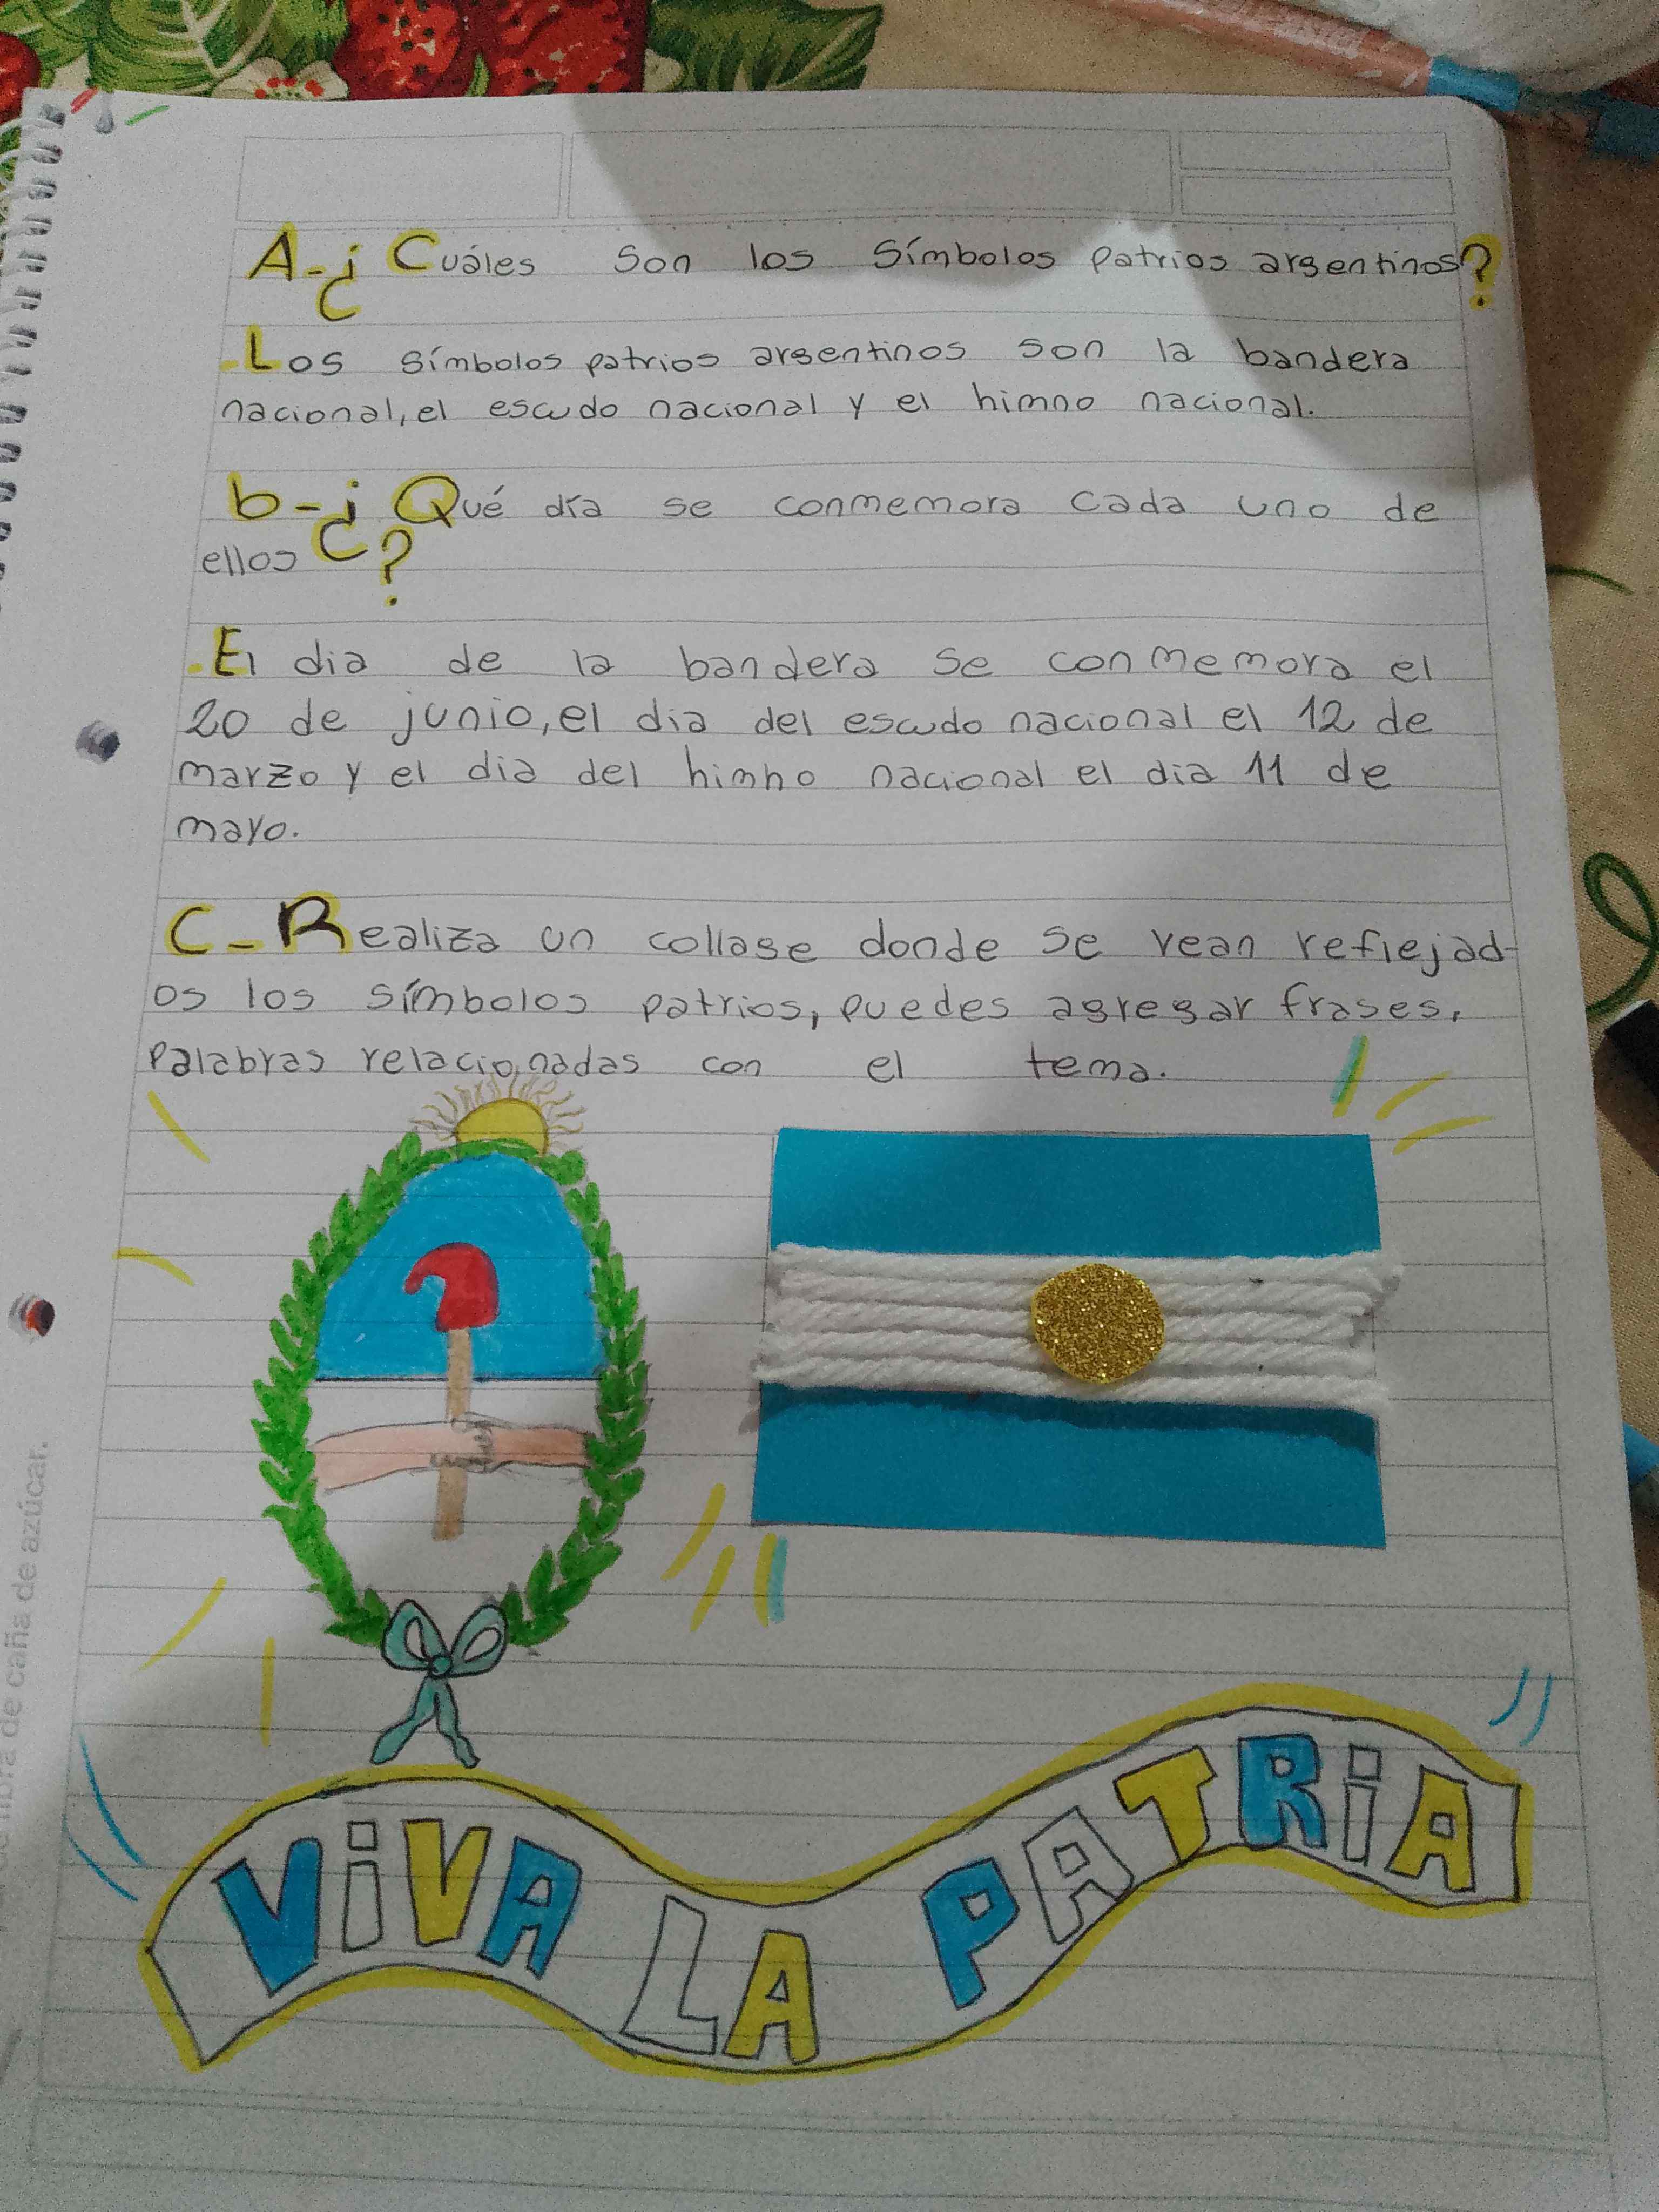 A-¿Cuáles son los símbolos patrios argentinos?
.Los símbolos patrios argentinos son la bandera
nacional, el escudo nacional y el himno nacional.
b-¿Qué día se conmemora cada uno de
ellos?
.El dia de la bandera se conmemora el
20 de junio, el dia del escudo nacional el 12 de
marzo y el dia del himno nacional el dia 11 de
mayo.
C-Realiza un collage donde se vean reflejad-
os los símbolos patrios, puedes agregar frases,
palabras relacionadas con el tema.
VIVA LA PATRIA
fibra de caña de azúcar.